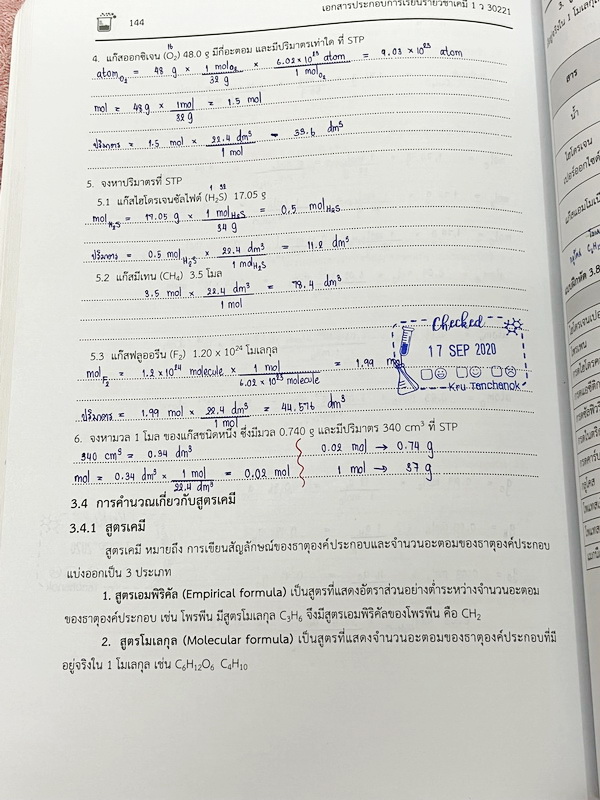 144
เอกสารประกอบการเรียนรายวิชาเคมี 1 ว 30221
4. แก๊สออกซิเจน (O₂) 48.0 g มีกี่อะตอม และมีปริมาตรเท่าใด ที่ STP
16
atom O₂ = 48 g × 1 mol O₂ / 32 g × 6.02 × 10²³ atom / 1 mol O₂ = 9.03 × 10²³ atom
mol = 48 g × 1 mol / 32 g = 1.5 mol
ปริมาตร = 1.5 mol × 22.4 dm³ / 1 mol = 33.6 dm³
5. จงหาปริมาตรที่ STP
5.1 แก๊สไฮโดรเจนซัลไฟด์ (H₂S) 17.05 g
1 32
mol H₂S = 17.05 g × 1 mol H₂S / 34 g = 0.5 mol H₂S
ปริมาตร = 0.5 mol H₂S × 22.4 dm³ / 1 mol H₂S = 11.2 dm³
5.2 แก๊สมีเทน (CH₄) 3.5 โมล
3.5 mol × 22.4 dm³ / 1 mol = 78.4 dm³
5.3 แก๊สฟลูออรีน (F₂) 1.20 x 10²⁴ โมเลกุล
mol F₂ = 1.2 × 10²⁴ molecule × 1 mol / 6.02 × 10²³ molecule = 1.99
ปริมาตร = 1.99 mol × 22.4 dm³ / 1 mol = 44.576 dm³
Checked
17 SEP 2020
Kru Tanchanok
6. จงหามวล 1 โมล ของแก๊สชนิดหนึ่ง ซึ่งมีมวล 0.740 g และมีปริมาตร 340 cm³ ที่ STP
340 cm³ = 0.34 dm³ 0.02 mol → 0.74 g
mol = 0.34 dm³ × 1 mol / 22.4 dm³ = 0.02 mol 1 mol → 37 g
3.4 การคำนวณเกี่ยวกับสูตรเคมี
3.4.1 สูตรเคมี
สูตรเคมี หมายถึง การเขียนสัญลักษณ์ของธาตุองค์ประกอบและจำนวนอะตอมของธาตุองค์ประกอบ
แบ่งออกเป็น 3 ประเภท
1. สูตรเอมพิริคัล (Empirical formula) เป็นสูตรที่แสดงอัตราส่วนอย่างต่ำระหว่างจำนวนอะตอม
ของธาตุองค์ประกอบ เช่น โพรพีน มีสูตรโมเลกุล C₃H₆ จึงมีสูตรเอมพิริคัลของโพรพีน คือ CH₂
2. สูตรโมเลกุล (Molecular formula) เป็นสูตรที่แสดงจำนวนอะตอมของธาตุองค์ประกอบที่มี
อยู่จริงใน 1 โมเลกุล เช่น C₆H₁₂O₆ C₄H₁₀
สาร
น้ำ
ไฮโดรเจน
เปอร์ออกไซด์